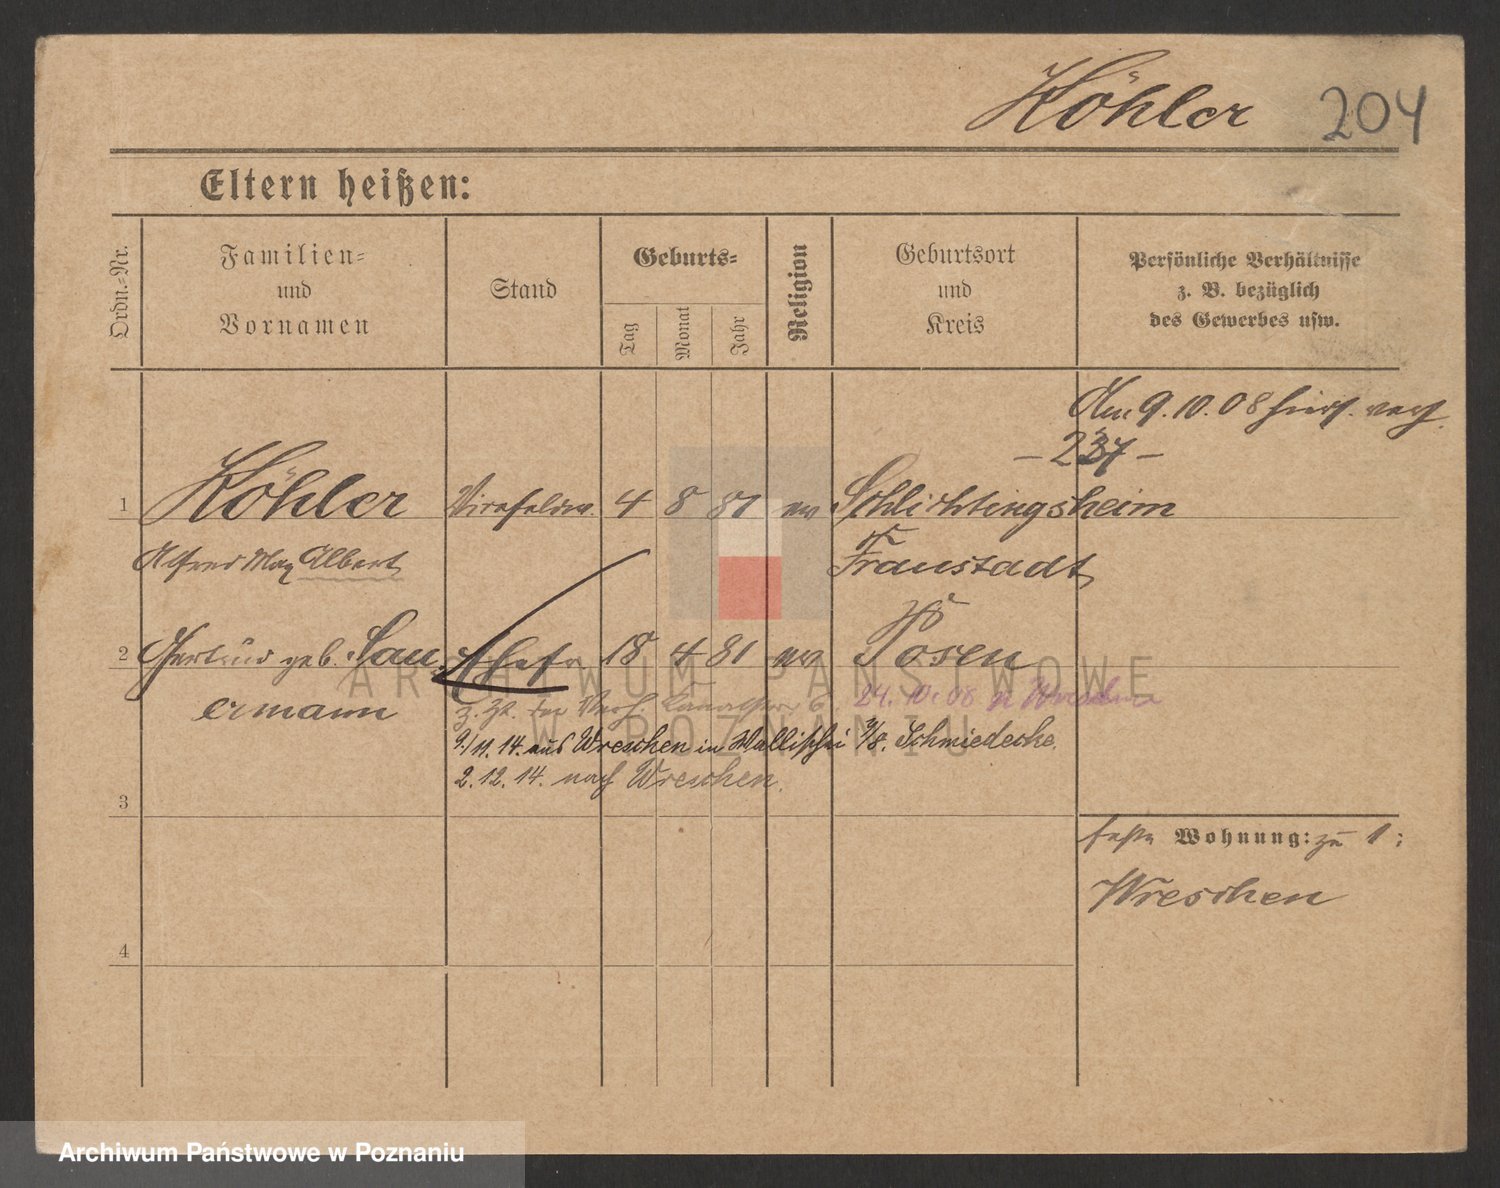 Köhler 204
Eltern heißen:
Ordn.-Nr.
Familien-
und
Vornamen
Stand
Geburts-
Tag
Monat
Jahr
Religion
Geburtsort
und
Kreis
Persönliche Verhältnisse
z. B. bezüglich
des Gewerbes usw.
Am 9.10.08 hier
1 Köhler Vizefeldw. 4 8 81 ev Schlichtingsheim
Alfred Max Albert Fraustadt
2 Gertrud geb. Sau Ehefr 18 4 81 ev Posen
ermann
z. Zt. 24.10.08 n Wreschen
9/11.14. aus Wreschen in Wallischei Schmiedecke.
2.12.14. nach Wreschen.
3
feste Wohnung: zu 1:
Wreschen
4
ARCHIWUM PAŃSTWOWE
W POZNANIU
Archiwum Państwowe w Poznaniu